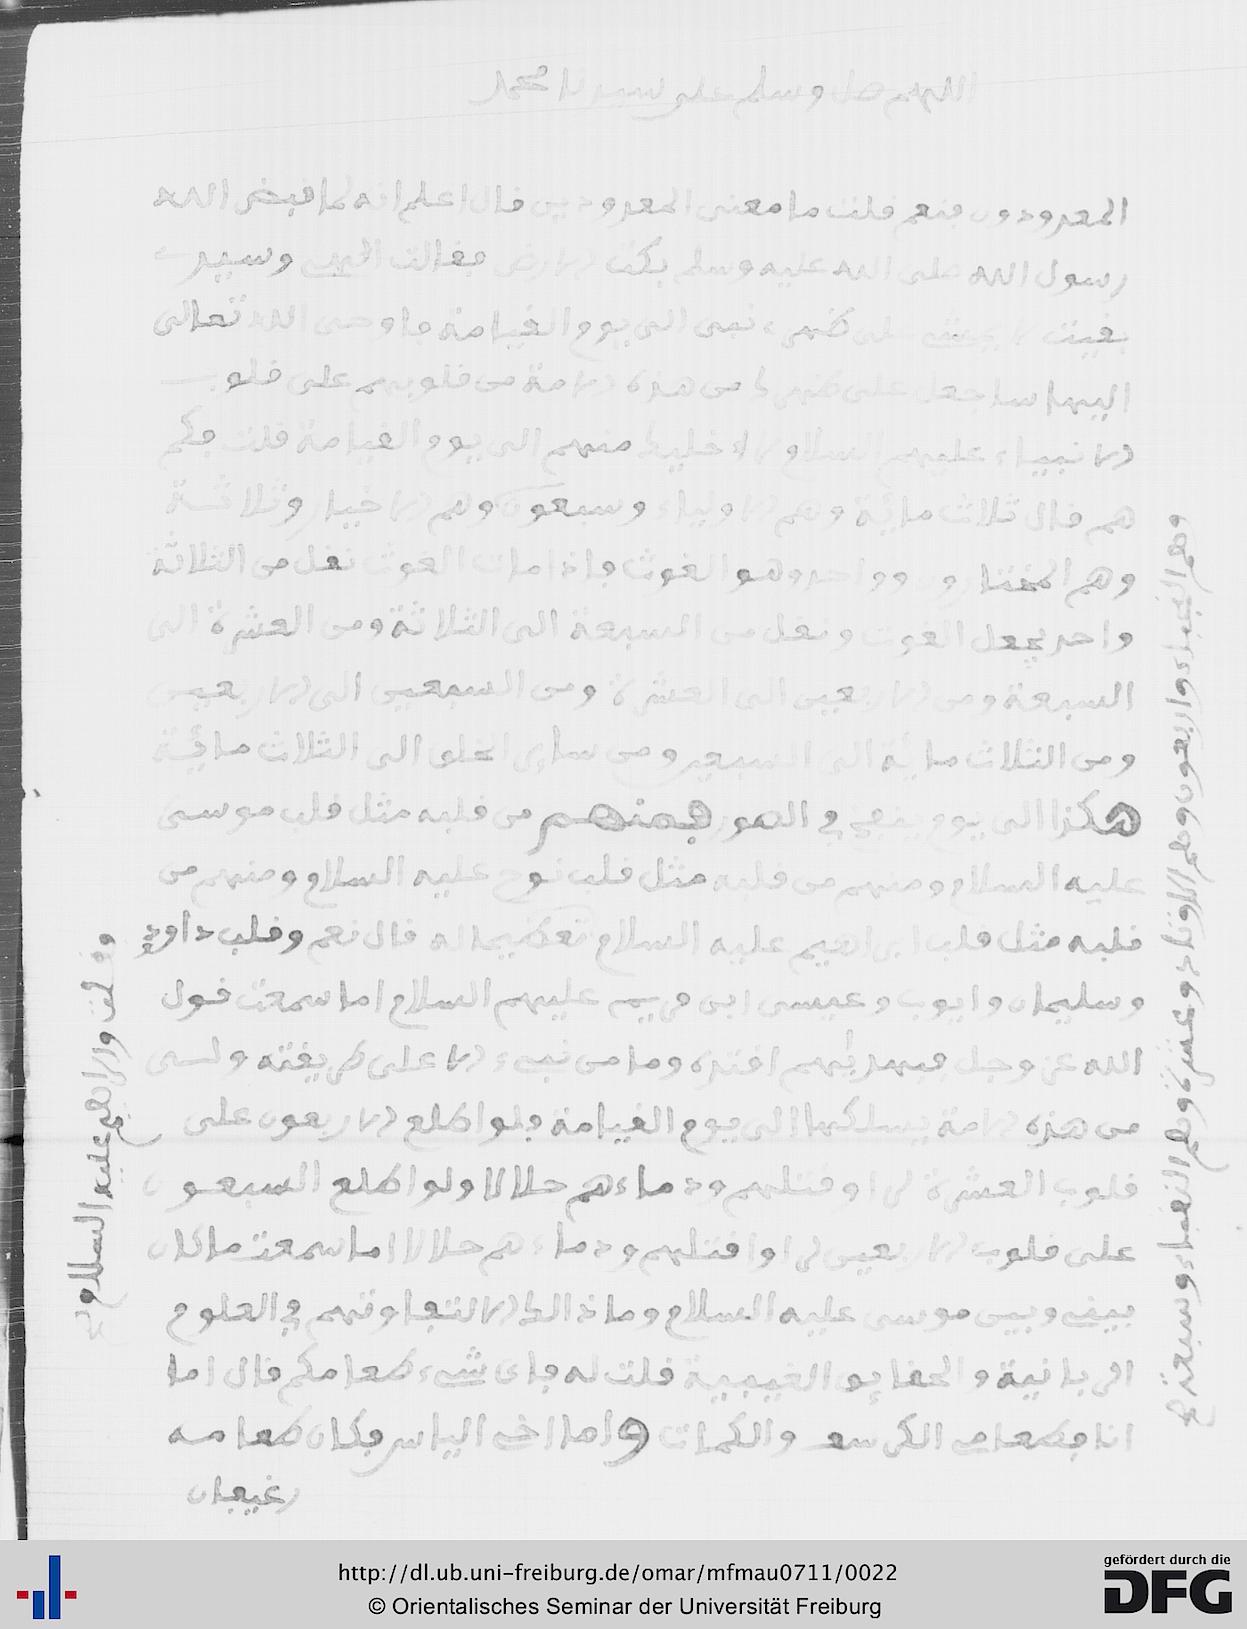 اللهم صل وسلم على سيدنا محمد
المعدودون فنعم فلت ما معنى المعدودين فال اعلم انه لما فبض الله
رسول الله صلى الله عليه وسلم بكت الارض ففالت الهي وسيدي
بفيت لا يمشي على ظهري نبي الى يوم الفيامة فاوحى الله تعالى
اليها ساجعل على ظهرك من هذه الامة من فلوبهم على فلوب
الانبياء عليهم السلام لا اخليك منهم الى يوم الفيامة فلت فكم
هم فال ثلاث مائة وهم الاولياء وسبعون وهم الاخيار وثلاثة
وهم المختارون وواحد وهو الغوث فاذا مات الغوث نفل من الثلاثة
واحد يجعل الغوث ونفل من السبعة الى الثلاثة ومن العشرة الى
السبعة ومن الاربعين الى العشرة ومن السبعين الى الاربعين
ومن الثلاث مائة الى السبعين ومن ساير الخلق الى الثلاث مائة
هكذا الى يوم ينفخ في الصور فمنهم من فلبه مثل فلب موسى
عليه السلام ومنهم من فلبه مثل فلب نوح عليه السلام ومنهم من
فلبه مثل فلب ابراهيم عليه السلام تعظيما له فال نعم وفلب داوود
وسليمان وايوب وعيسى ابن مريم عليهم السلام اما سمعت فول
الله عز وجل فبهديهم افتده وما من نبيء الا على طريفته ولسى
من هذه الامة يسلكها الى يوم الفيامة ولو اطلع الاربعون على
فلوب العشرة لراو فتلهم ودماءهم حلالا ولو اطلع السبعون
على فلوب الاربعين لراوا فتلهم ودماءهم حلالا اما سمعت ما كان
بيني وبين موسى عليه السلام وما ذالك الا لتفاوتهم في العلوم
الربانية والحفايق الغيبية فلت له فاى شيء طعامكم فال اما
انا فطعامي الكرسف والكمات واما اخي الياس فكان طعامه
رغيفان
وهم النجباء واربعون وهم الاوتاد وعشرة وهم النفباء وسبعة
وفلت وابراهيم عليه السلام
http://dl.ub.uni-freiburg.de/omar/mfmau0711/0022
© Orientalisches Seminar der Universität Freiburg
gefördert durch die
DFG